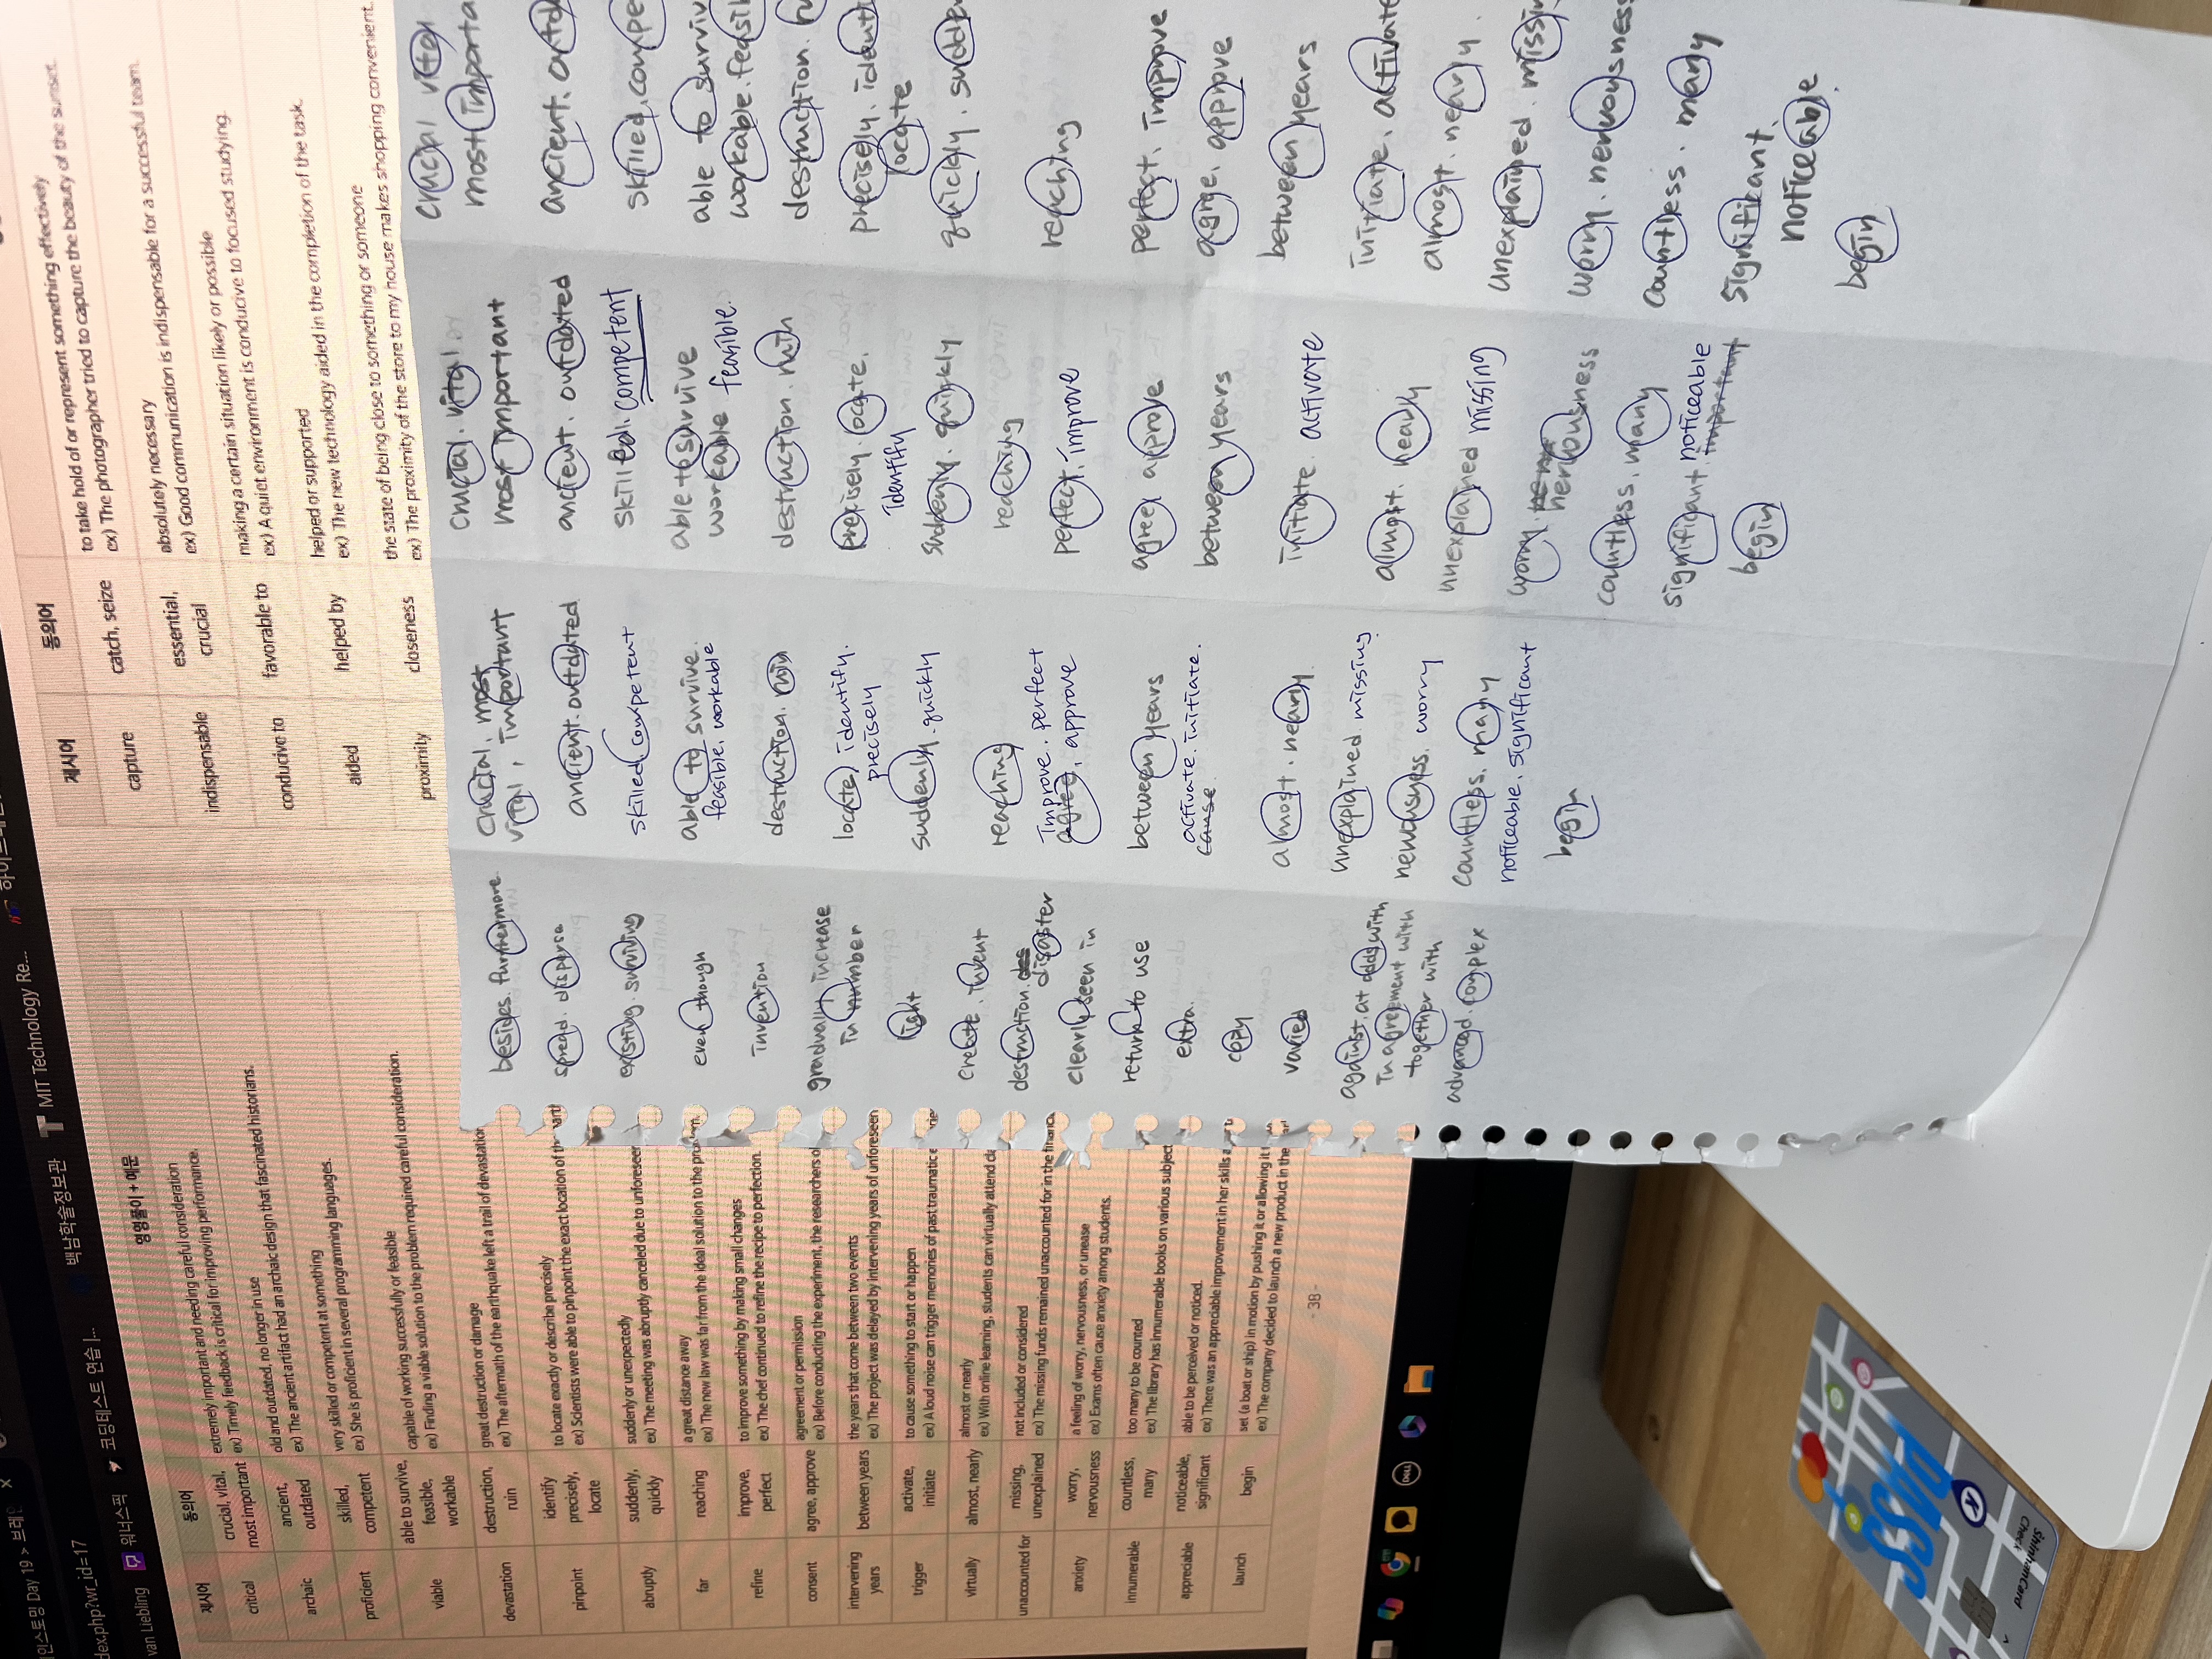 인스토밍 Day 19 > 브레인
dex.php?wr_id=17
van Liebling
워너스픽
코딩테스트 연습 |...
백남학술정보관
MIT Technology Re...
하이
제시어
동의어
영영풀이 + 예문
critical
crucial, vital,
most important
extremely important and needing careful consideration
ex) Timely feedback is critical for improving performance.
archaic
ancient,
outdated
old and outdated, no longer in use
ex) The ancient artifact had an archaic design that fascinated historians.
proficient
skilled,
competent
very skilled or competent at something
ex) She is proficient in several programming languages.
viable
able to survive,
feasible,
workable
capable of working successfully or feasible
ex) Finding a viable solution to the problem required careful consideration.
devastation
destruction,
ruin
great destruction or damage
ex) The aftermath of the earthquake left a trail of devastation
pinpoint
identify
precisely,
locate
to locate exactly or describe precisely
ex) Scientists were able to pinpoint the exact location of the
abruptly
suddenly,
quickly
suddenly or unexpectedly
ex) The meeting was abruptly canceled due to unforeseen
far
reaching
a great distance away
ex) The new law was far from the ideal solution to the problem.
refine
improve,
perfect
to improve something by making small changes
ex) The chef continued to refine the recipe to perfection.
consent
agree, approve
agreement or permission
ex) Before conducting the experiment, the researchers
intervening
years
between years
the years that come between two events
ex) The project was delayed by intervening years of unforeseen
trigger
activate,
initiate
to cause something to start or happen
ex) A loud noise can trigger memories of past traumatic
virtually
almost, nearly
almost or nearly
ex) With online learning, students can virtually attend
unaccounted for
missing,
unexplained
not included or considered
ex) The missing funds remained unaccounted for in the
anxiety
worry,
nervousness
a feeling of worry, nervousness, or unease
ex) Exams often cause anxiety among students.
innumerable
countless,
many
too many to be counted
ex) The library has innumerable books on various
appreciable
noticeable,
significant
able to be perceived or noticed.
ex) There was an appreciable improvement in her skills
launch
begin
set (a boat or ship) in motion by pushing it or allowing it
ex) The company decided to launch a new product in the
- 38 -
제시어
동의어
capture
catch, seize
to take hold of or represent something effectively
ex) The photographer tried to capture the beauty of the sunset.
indispensable
essential,
crucial
absolutely necessary
ex) Good communication is indispensable for a successful team.
conducive to
favorable to
making a certain situation likely or possible
ex) A quiet environment is conducive to focused studying.
aided
helped by
helped or supported
ex) The new technology aided in the completion of the task.
proximity
closeness
the state of being close to something or someone
ex) The proximity of the store to my house makes shopping convenient.
besides. furthermore
spread. disperse
existing. surviving
even though
invention
gradually increase
in number
light
create. invent
destruction. disaster
clearly seen in
return to use
extra.
copy
varied
against. at odds with
In agreement with
together with
advanced. complex
crucial. most
vital, important
ancient. outdated
skilled. competent
able to survive.
feasible. workable
destruction. ruin
locate, identify.
precisely
suddenly. quickly
reaching
improve. perfect
agree, approve
between years
activate. initiate.
almost. nearly.
unexplained. missing.
nervousness. worry
countless. many
noticeable. significant
begin
crucial. vital.
most important
ancient. outdated
skilled. competent
able to survive
workable feasible.
destruction. ruin
precisely. locate.
Identify
suddenly. quickly
reaching
perfect. improve
agree. approve
between years
initiate. activate
almost. nearly
unexplained missing
worry. nervousness
countless. many
significant. noticeable
begin
crucial vital
most importa
ancient. outd
skilled. compe
able to surviv
workable. feasi
destruction. ru
precisely. identi
locate
quickly. sudden
reaching
perfect. improve
agree. approve
between years
initiate. activate
almost. nearly.
unexplained. missin
worry. nervousness
countless. many
significant.
noticeable.
begin
DELL
PASS
ShinhanCard
Check
K